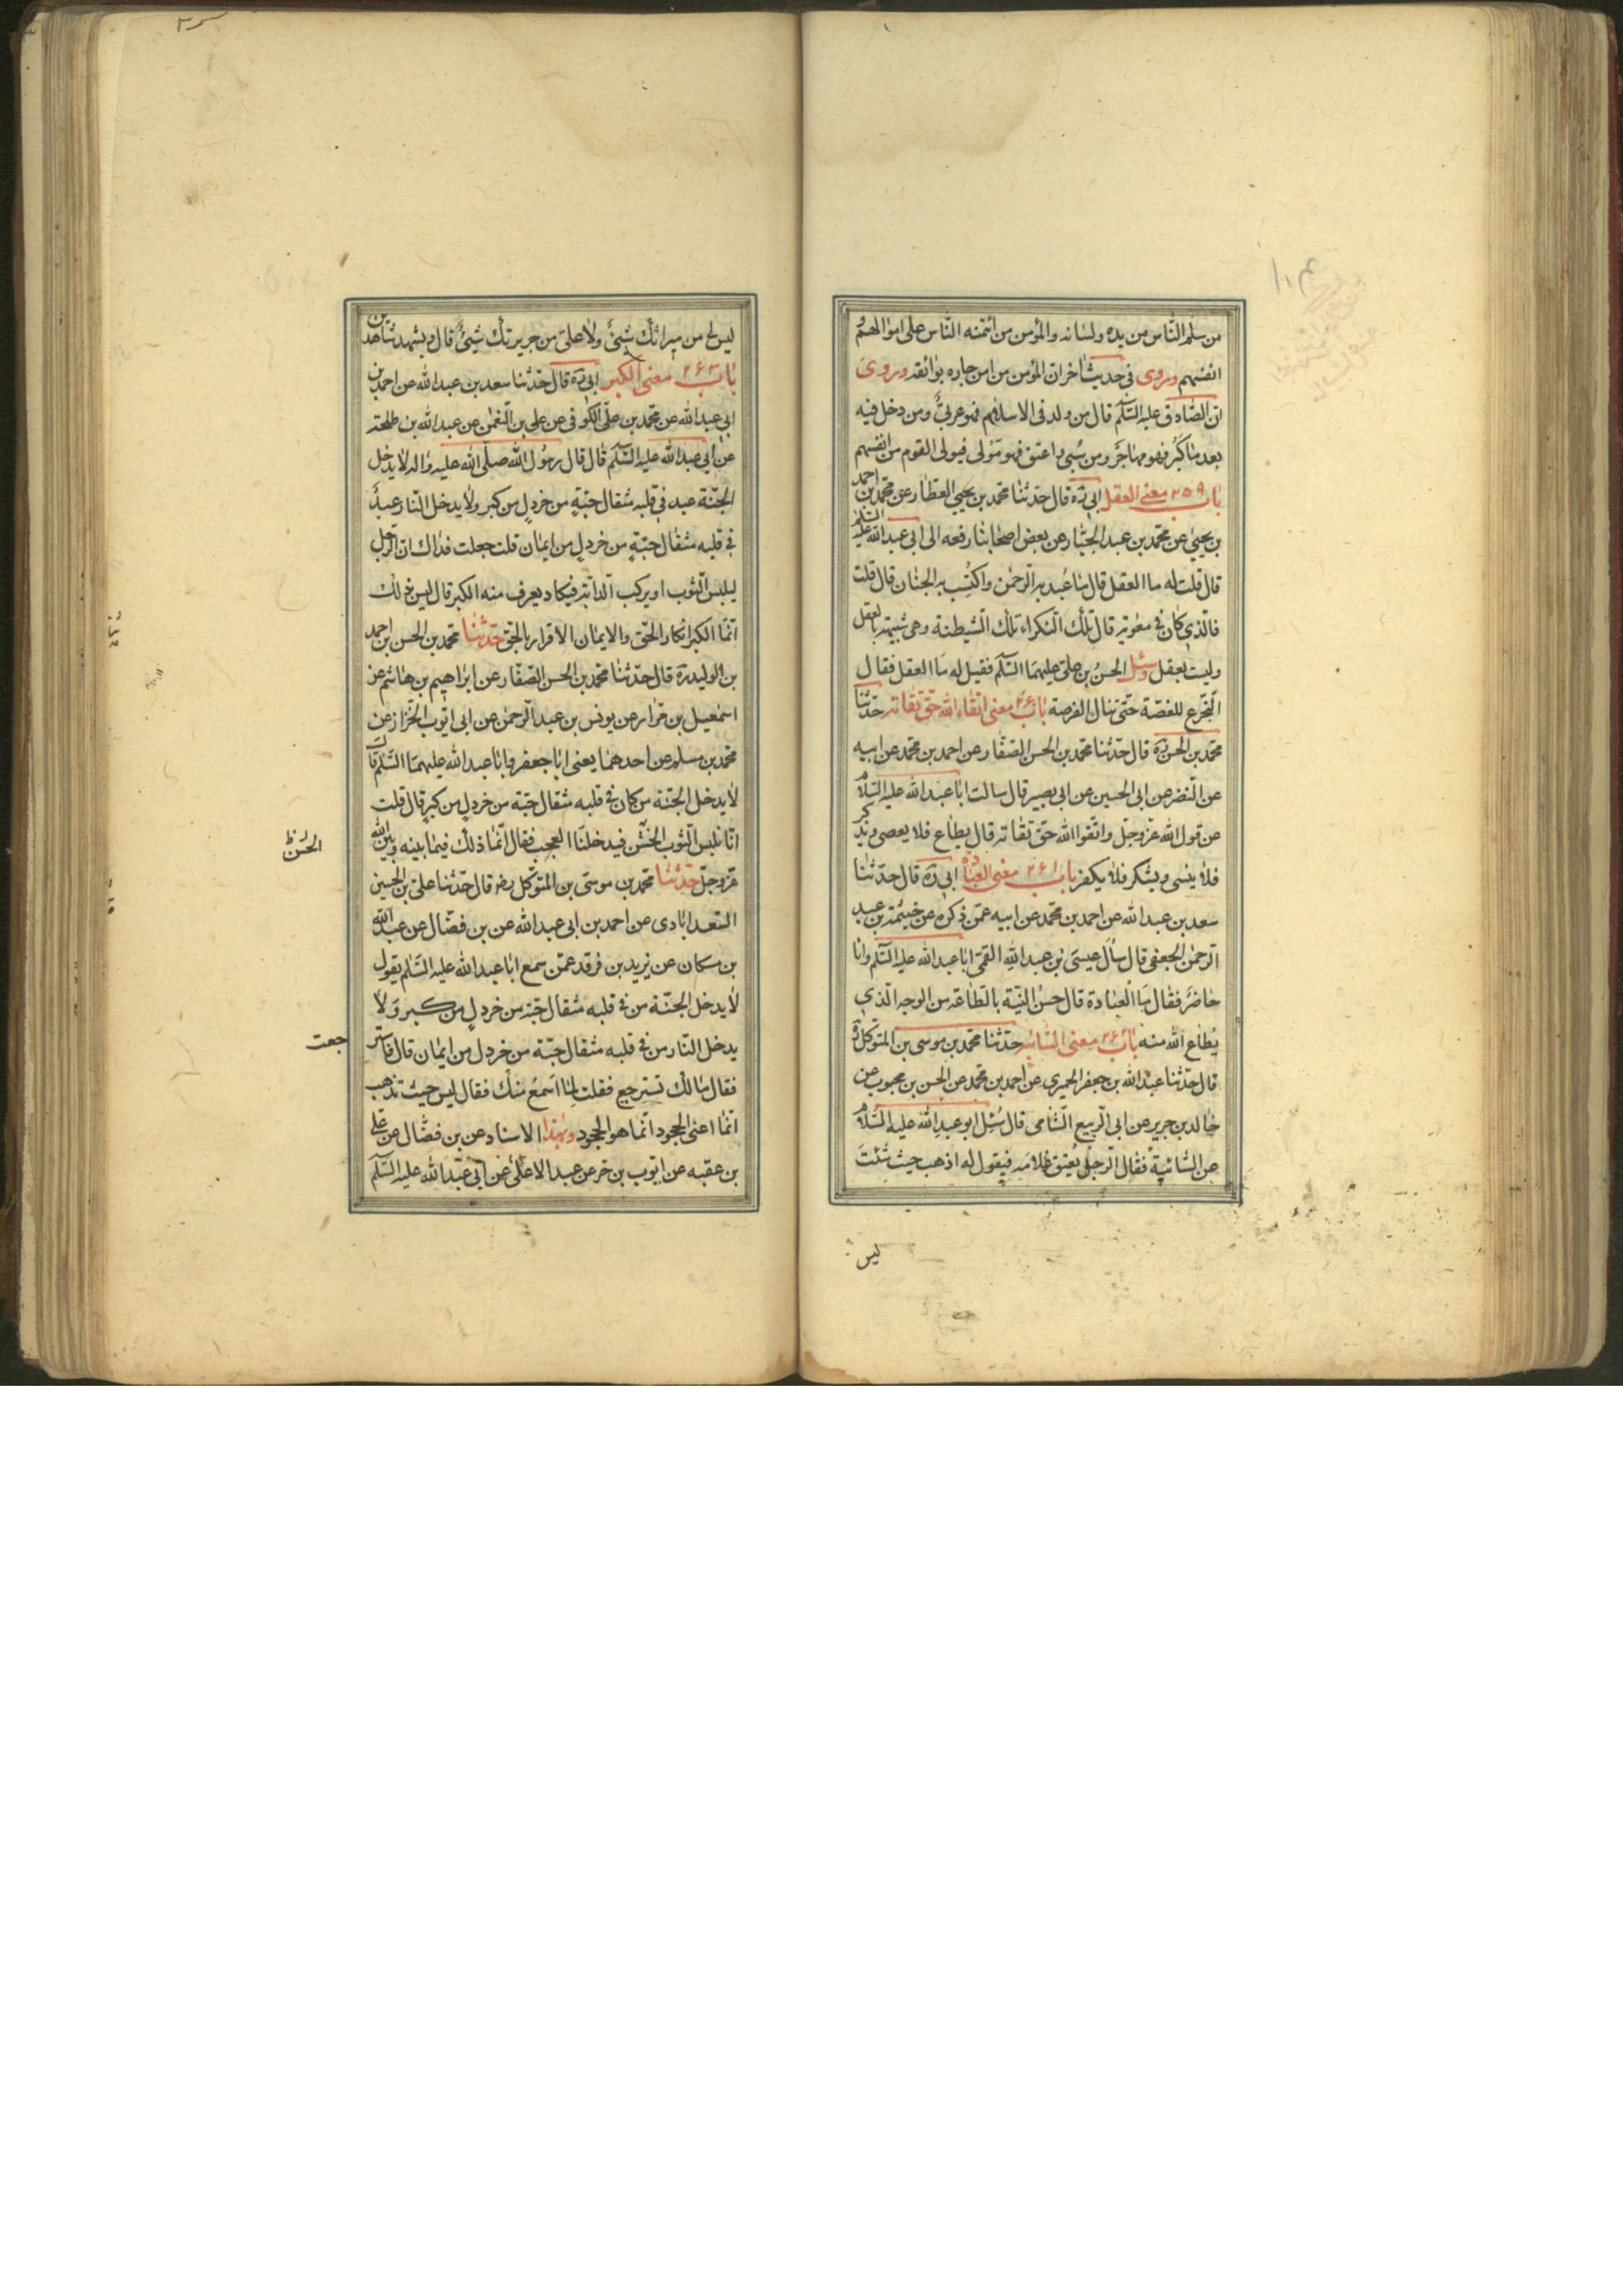 من سلم الناس من يده ولسانه والمؤمن من ائتمنه الناس على اموالهم و
انفسهم وروى فى حديث اخر ان المؤمن من امن جاره بوائقه وروى
ان الصادق عليه السلم قال من ولد فى الاسلام فهو عربى ومن دخل فيه
بعد ما كبر فهو مهاجر ومن سبى واعتق فهو مولى فمولى القوم من انفسهم
باب ٢٥٩ معنى العقل ابى ره قال حدثنا محمد بن يحيى العطار عن محمد بن احمد
بن يحيى عن محمد بن عبد الجبار عن بعض اصحابنا رفعه الى ابى عبد الله عليه السلم
قال قلت له ما العقل قال ما عُبد به الرحمن واكتُسِب به الجنان قال قلت
فالذى كان فى معوية قال تلك النكراء تلك الشيطنة وهى شبيهة بالعقل
وليست بعقل وسئل الحسنُ بن على عليهما السلم فقيل له ما العقل فقال
التجرع للغصّة حتى تنال الفرصة باب ٢٦٠ معنى اتقاء الله حق تقاته حدثنا
محمد بن الحسن ره قال حدثنا محمد بن الحسن الصفار عن احمد بن محمد عن ابيه
عن النضر عن ابى الحسين عن ابى بصير قال سالت ابا عبد الله عليه السلام
عن قول الله عز وجل واتقوا الله حق تقاته قال يطاع فلا يعصى ويذكر
فلا ينسى ويشكر فلا يكفر باب ٢٦١ معنى العبادة ابى ره قال حدثنا
سعد بن عبد الله عن احمد بن محمد عن ابيه عمن ذكره عن خيثمة بن عبد
الرحمن الجعفى قال سأل عيسى بن عبد الله القمى ابا عبد الله عليه السلم وانا
حاضر فقال ما العبادة قال حسنُ النية بالطاعة من الوجه الذى
يُطاع الله منه باب ٢٦٢ معنى السائبة حدثنا محمد بن موسى بن المتوكل ره
قال حدثنا عبد الله بن جعفر الحميرى عن احمد بن محمد عن الحسن بن محبوب عن
خالد بن جرير عن ابى الربيع الشامى قال سُئِل ابو عبد الله عليه السلام
عن السائبة فقال الرجل يُعتق غلامه فيقول له اذهب حيث شئتَ
ليس
ليس لى من ميراثك شىءٌ ولا على من جريرتك شىءٌ قال ويشهد شاهدين
باب ٢٦٣ معنى الكبر ابى ره قال حدثنا سعد بن عبد الله عن احمد بن
ابى عبد الله عن محمد بن على الكوفى عن على بن النعمن عن عبد الله بن طلحة
عن ابى عبد الله عليه السلم قال قال رسول الله صلى الله عليه واله لا يدخل
الجنة عبد فى قلبه مثقال حبّةٍ من خردلٍ من كبر ولا يدخل النار عبدٌ
فى قلبه مثقال حبّةٍ من خردلٍ من ايمان قلت جعلت فداك ان الرجل
ليلبس الثوب او يركب الدابة فيكاد يعرف منه الكبر قال ليس ذلك
انما الكبر انكار الحق والايمان الاقرار بالحق حدثنا محمد بن الحسن بن احمد
بن الوليد ره قال حدثنا محمد بن الحسن الصفار عن ابراهيم بن هاشم عن
اسمعيل بن مرار عن يونس بن عبد الرحمن عن ابى ايوب الخزاز عن
محمد بن مسلم عن احدهما يعنى ابا جعفر وابا عبد الله عليهما السلم قال
لا يدخل الجنة من كان فى قلبه مثقال حبة من خردلٍ من كبرٍ قال قلت
انا نلبس الثوب الخشن فيدخلنا العجب فقال انما ذلك فيما بينه وبين الله
الحسن ظ
عز وجل حدثنا محمد بن موسى بن المتوكل رضه قال حدثنا على بن الحسين
السعدابادى عن احمد بن ابى عبد الله عن بن فضال عن عبد الله
بن مسكان عن يزيد بن فرقد عمن سمع ابا عبد الله عليه السلم يقول
لا يدخل الجنة من فى قلبه مثقال حبة من خردلٍ من كبر ولا
يدخل النار من فى قلبه مثقال حبّة من خردل من ايمان قال فاستر
جعت
فقال مالك تسترجع فقلت لما اسمعُ منك فقال ليس حيث تذهب
انما اعنى الجحود انما هو الجحود وبهذا الاسناد عن بن فضال عن على
بن عقبه عن ايوب بن حر عن عبد الاعلى عن ابى عبد الله عليه السلم